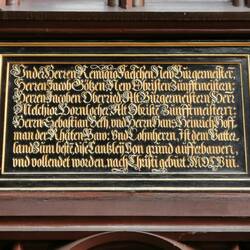 Under Herren Remigio Faeschen New Burgermeister,
Herren Jacob Götzen New Obristen Zunfftmeistern:
Herren Jacoben Oberriedt Alt Burgermeistern: Herr
Melchior Hornlocher Alt Obriste Zunfftmeistern:
Herren Sebastian Beck, vnd Herrn Hans Heinrich Hoff
man der Rhäten Baw: vnd Lohnherrn: Ist dem Vatter
land zum best, dise Cantzley Von grund aufferbawen,
vnd vollendet worden, nach Christi geburt